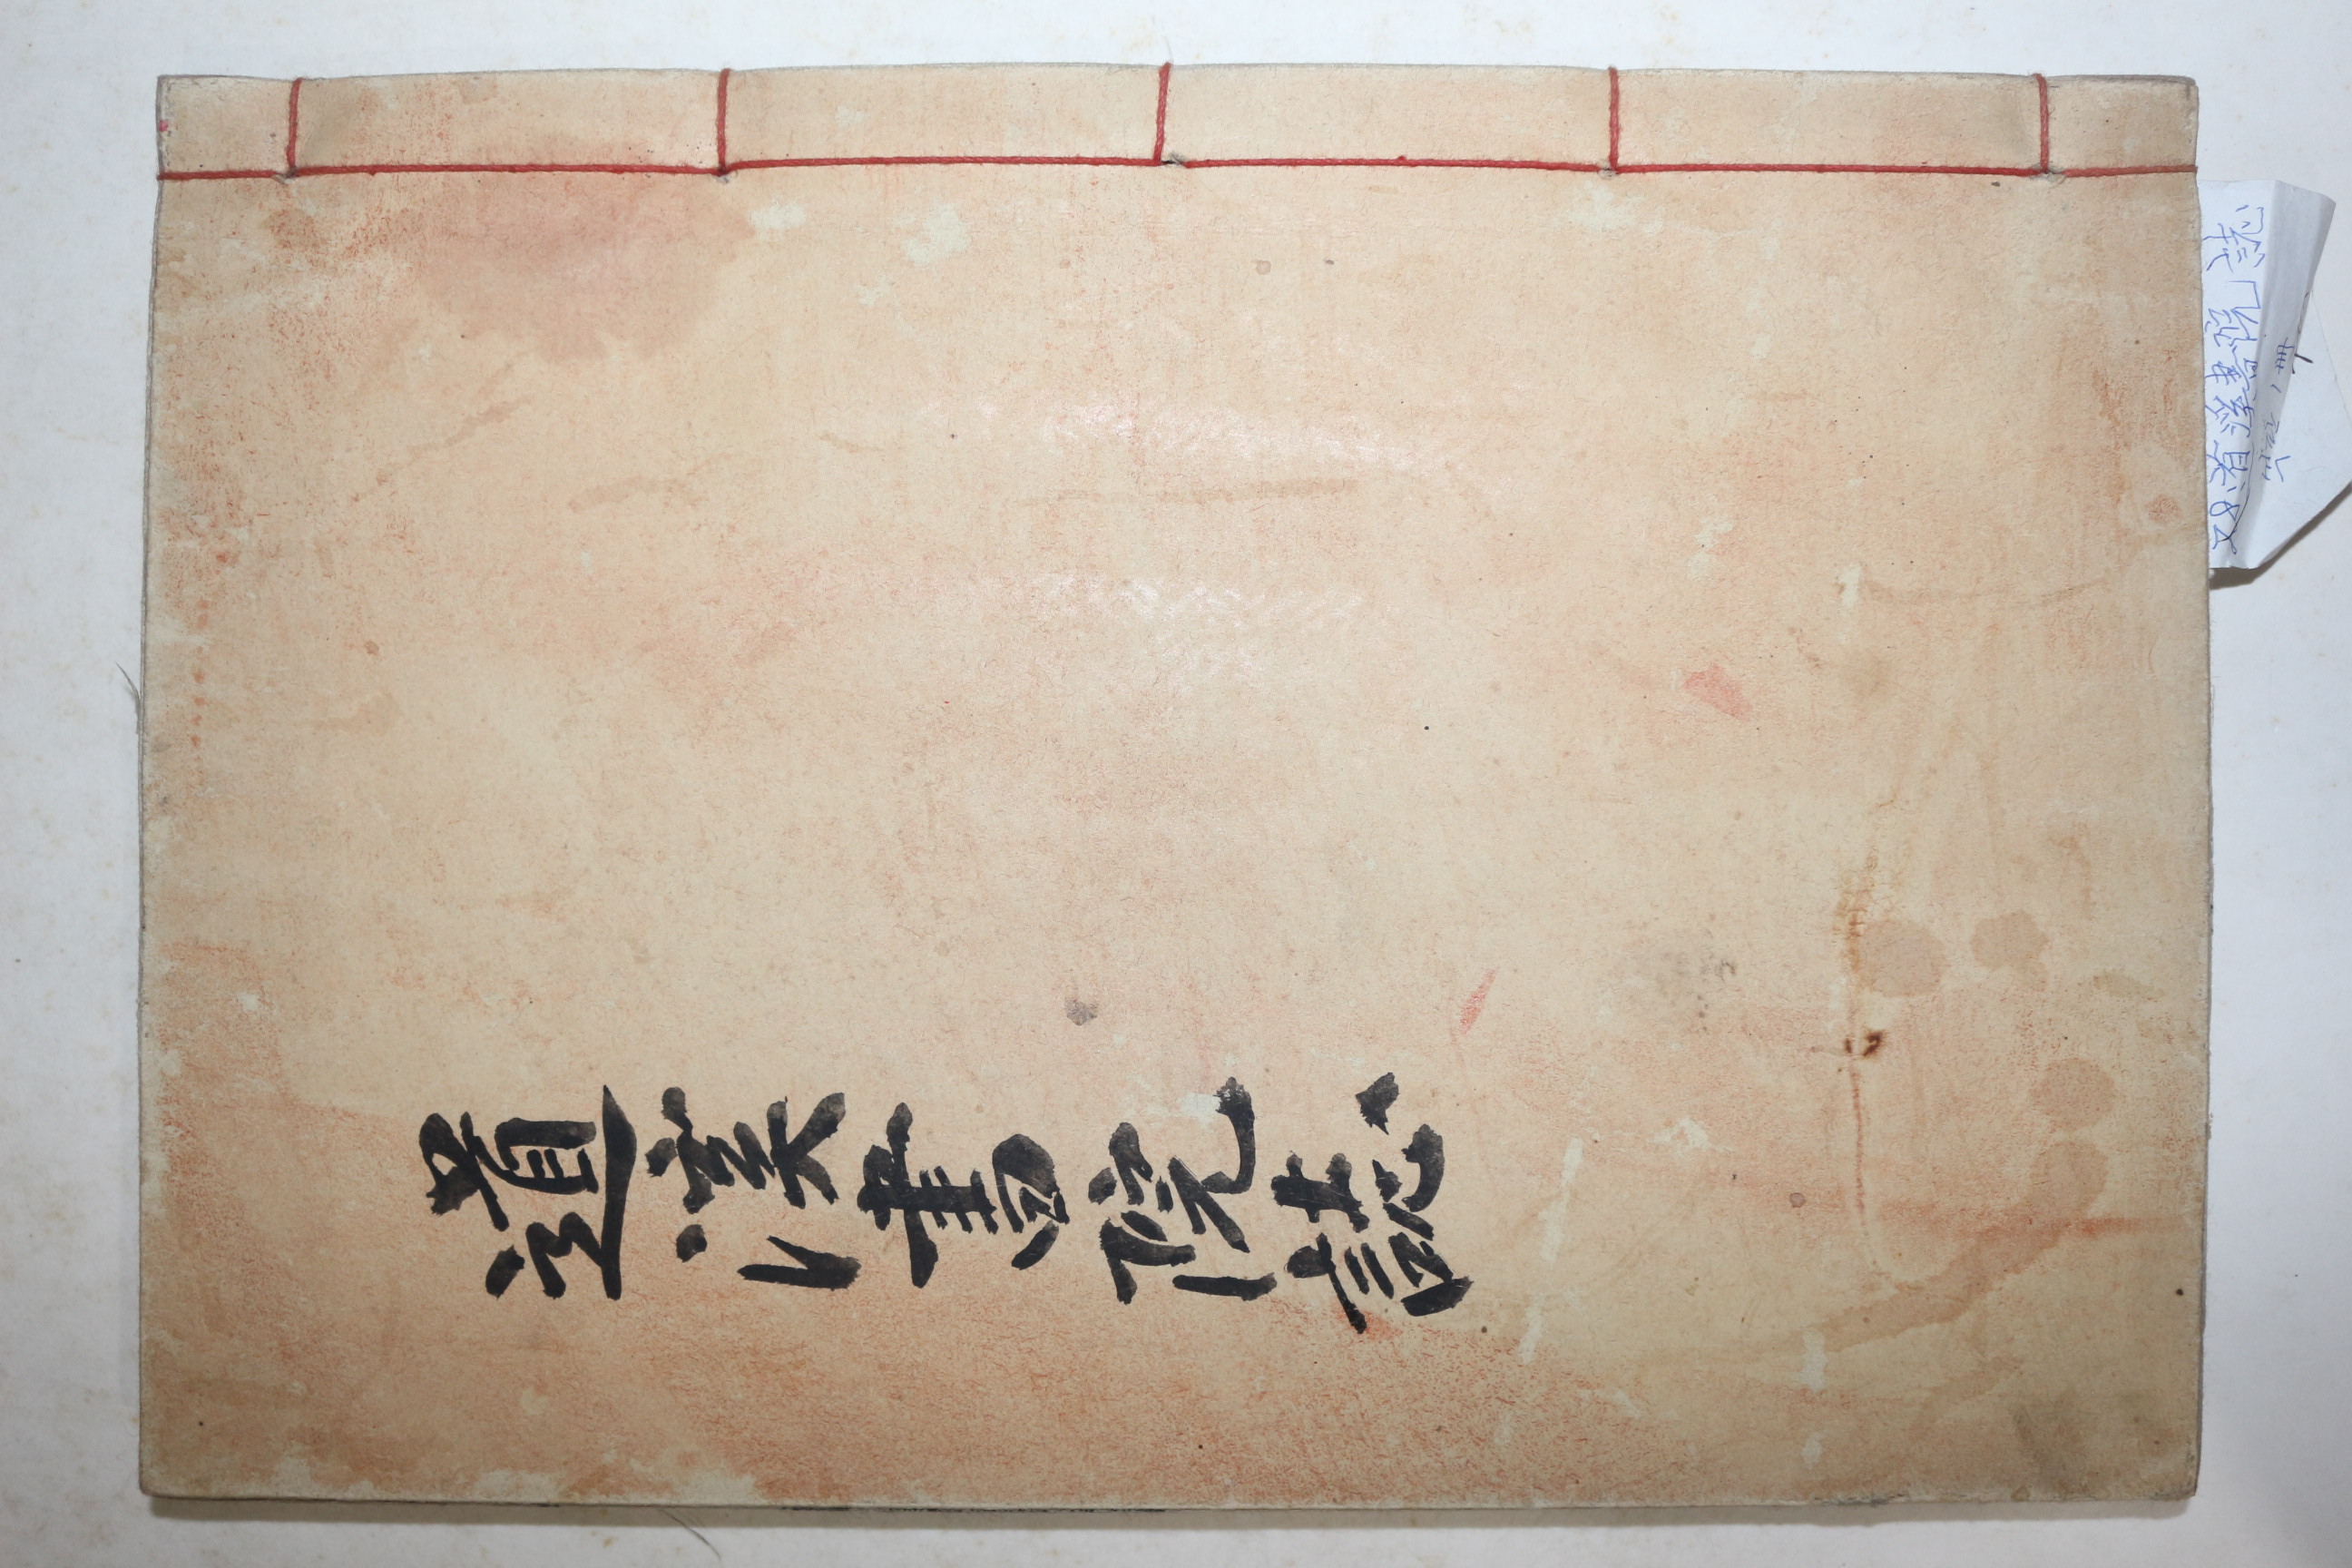 道溪書院誌
道溪書院誌